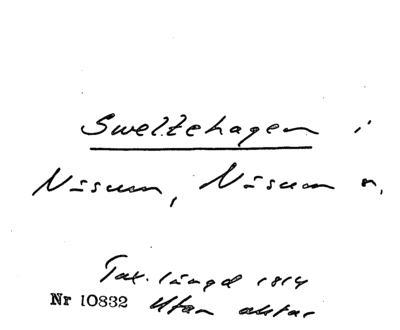 Sweltehagen i
Näsum, Näsum sn,
Tax. längd 1814
Nr 10832 Utan aktnr